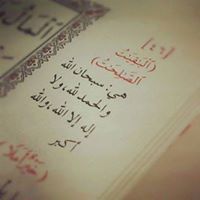 [٤٦]
﴿وَالْبَـٰقِيَـٰتُ
الصَّـٰلِحَـٰتُ﴾
هي: سبحان الله
والحمد لله، ولا
إله إلا الله، والله
أكبر